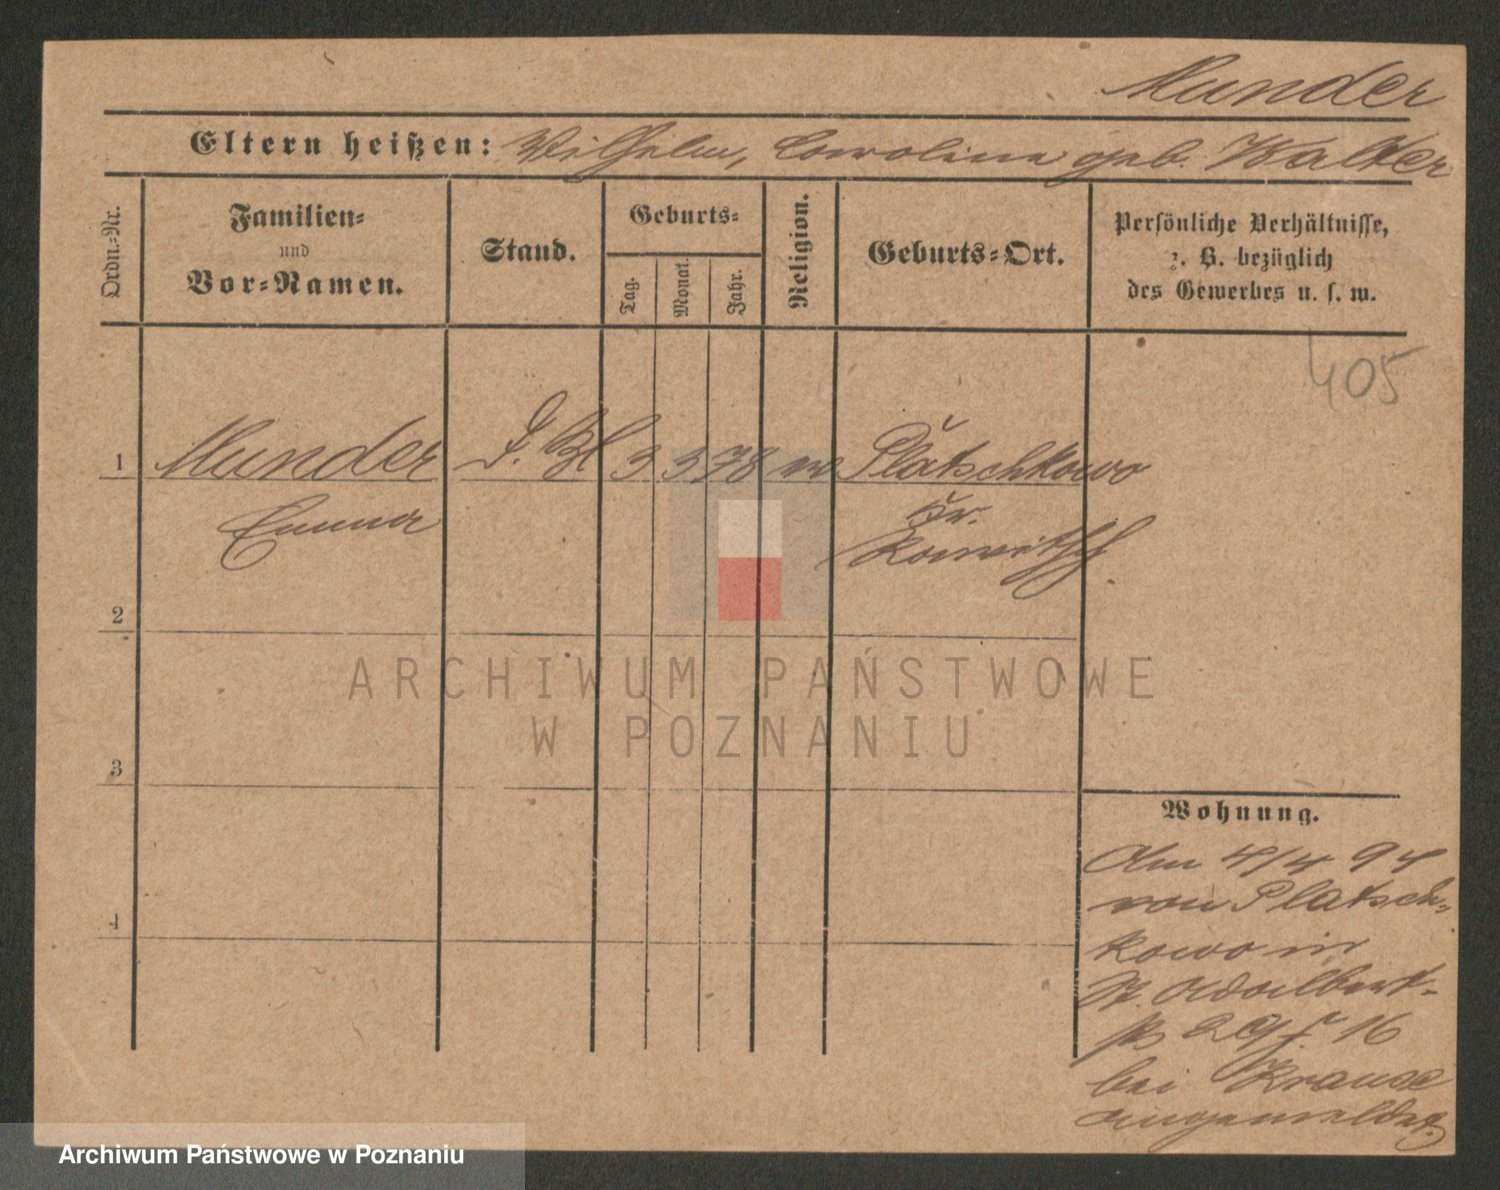 Munder
Eltern heißen: Wilhelm, Caroline geb. Walter
Ordn.-Nr.
Familien-
und
Vor-Namen.
Stand.
Geburts-
Tag.
Monat.
Jahr.
Religion.
Geburts-Ort.
Persönliche Verhältnisse,
z. B. bezüglich
des Gewerbes u. s. w.
405
1 Munder 3 3 78 ev Platschkowo
Emma Kr.
Rawitsch
2
3
4
Wohnung.
Am 4/4 94
von Platsch-
kowo in
St Adalbert-
16
bei Krause
angemeldet.
ARCHIWUM PAŃSTWOWE
W POZNANIU
Archiwum Państwowe w Poznaniu